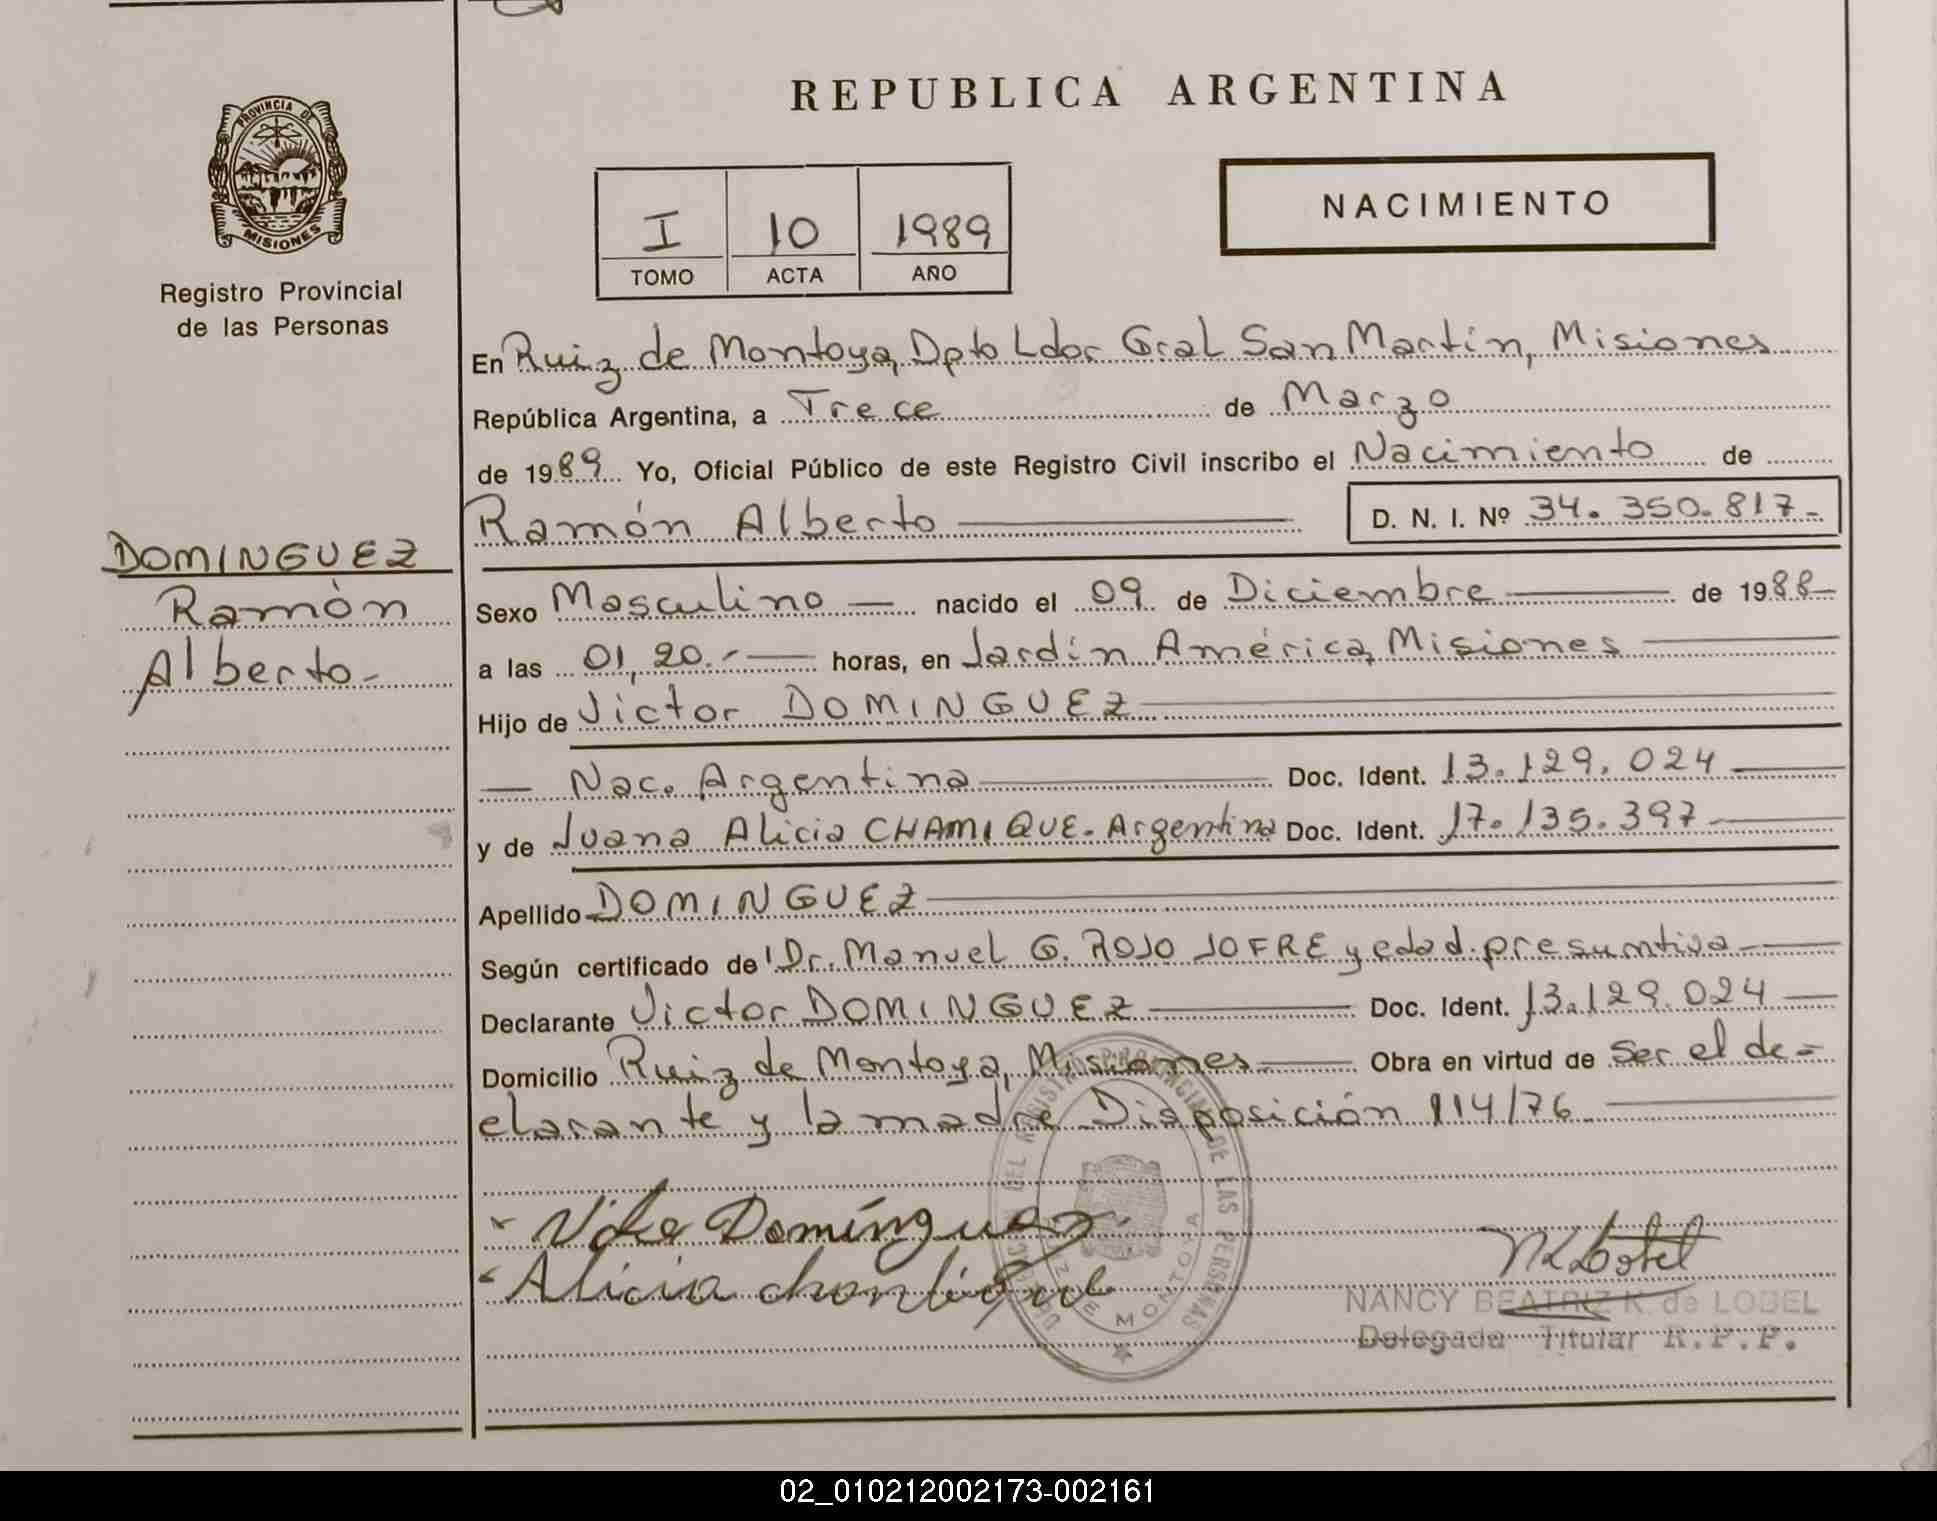 REPUBLICA ARGENTINA
PROVINCIA DE
MISIONES
Registro Provincial
de las Personas
I 10 1989
TOMO ACTA AÑO
NACIMIENTO
En Ruiz de Montoya, Dpto Ldor Gral San Martín, Misiones
República Argentina, a Trece de Marzo
de 1989 Yo, Oficial Público de este Registro Civil inscribo el Nacimiento de
Ramón Alberto D. N. I. Nº 34.350.817-
DOMINGUEZ
Ramón
Alberto-
Sexo Masculino — nacido el 09 de Diciembre — de 1988-
a las 01,20.- — horas, en Jardín América, Misiones
Hijo de Victor DOMINGUEZ
— Nac. Argentina Doc. Ident. 13.129.024
y de Juana Alicia CHAMIQUE-Argentina Doc. Ident. 17.135.397
Apellido DOMINGUEZ
Según certificado de Dr. Manuel G. ROJO JOFRE y edad presuntiva
Declarante Victor DOMINGUEZ Doc. Ident. 13.129.024
Domicilio Ruiz de Montoya, Misiones Obra en virtud de Ser el de-
clarante y la madre Disposición 114/76
Domínguez
Alicia
DEL REGISTRO PROVINCIAL DE LAS PERSONAS
MONTOYA
NANCY BEATRIZ K. de LOBEL
Delegada Titular R.P.P.
02_010212002173-002161